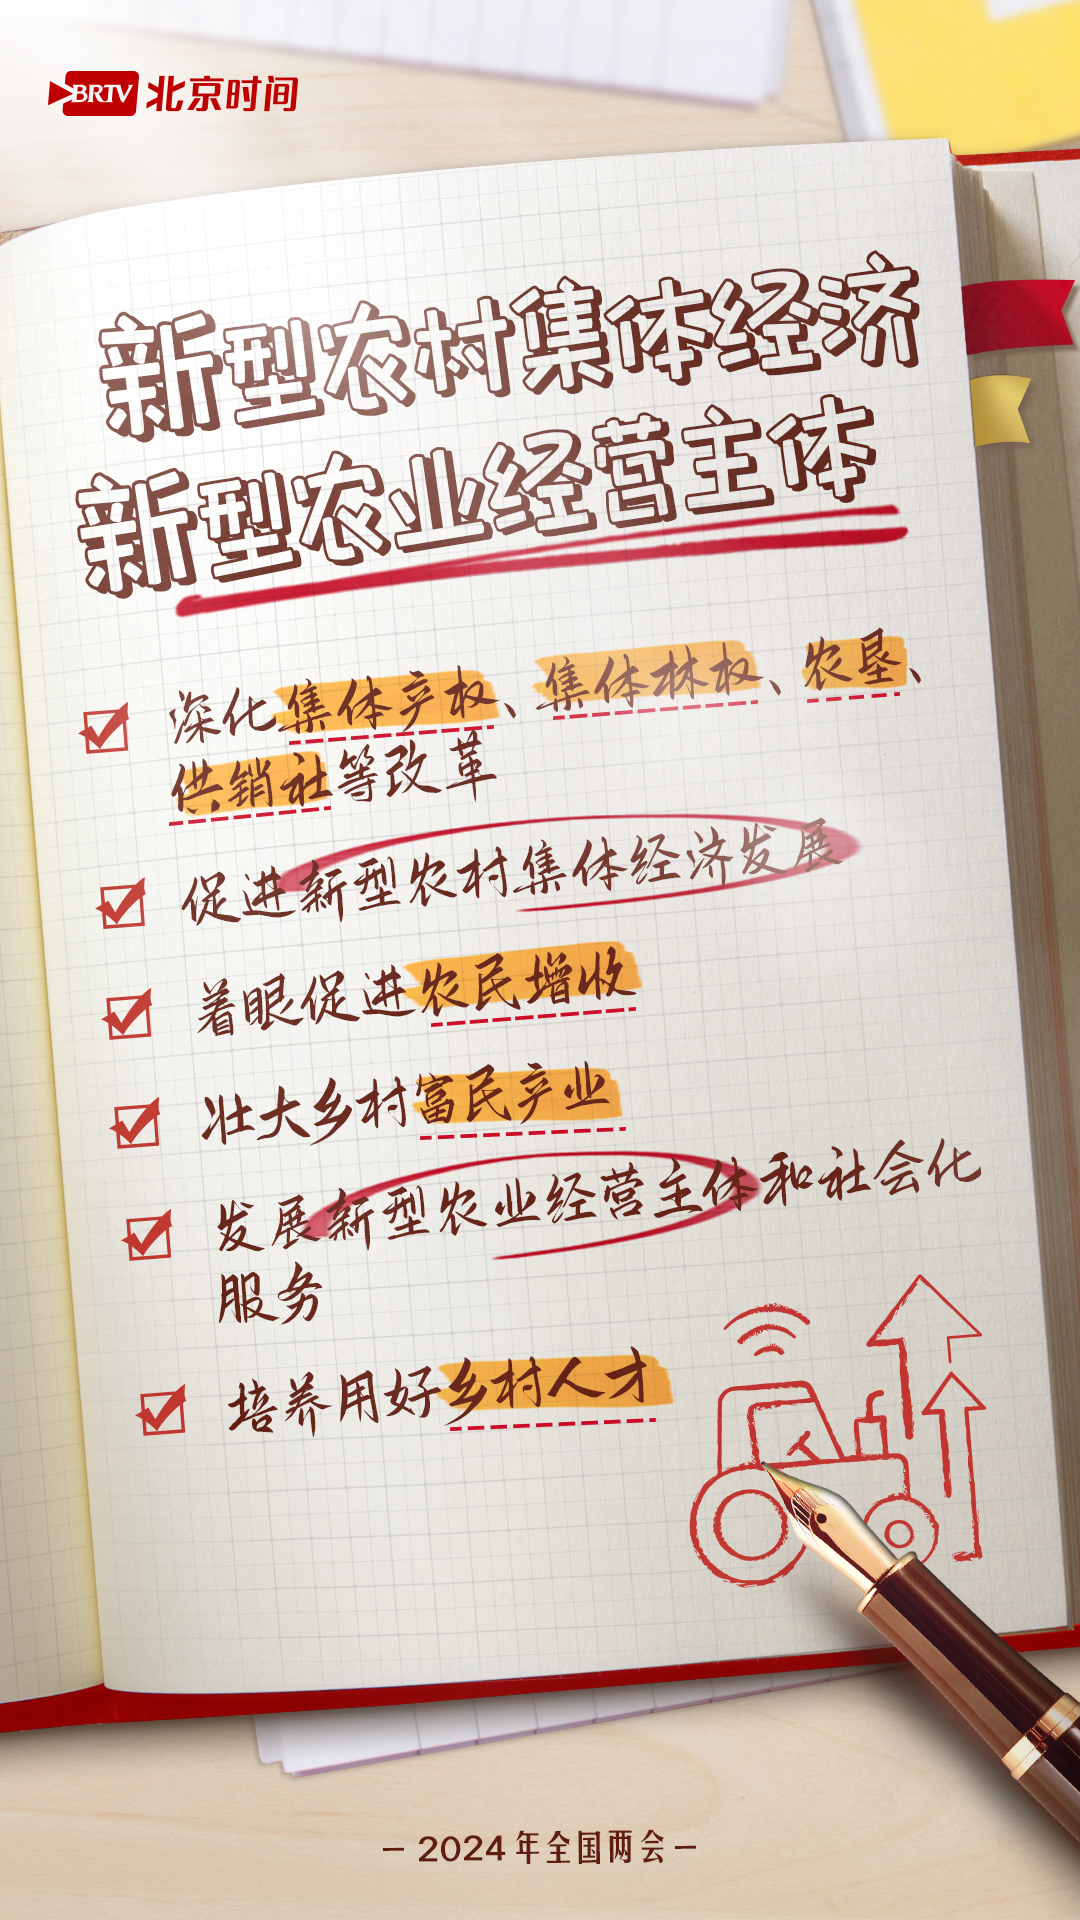 BRTV 北京时间
新型农村集体经济
新型农业经营主体
深化集体产权、集体林权、农垦、
供销社等改革
促进新型农村集体经济发展
着眼促进农民增收
壮大乡村富民产业
发展新型农业经营主体和社会化
服务
培养用好乡村人才
— 2024年全国两会 —